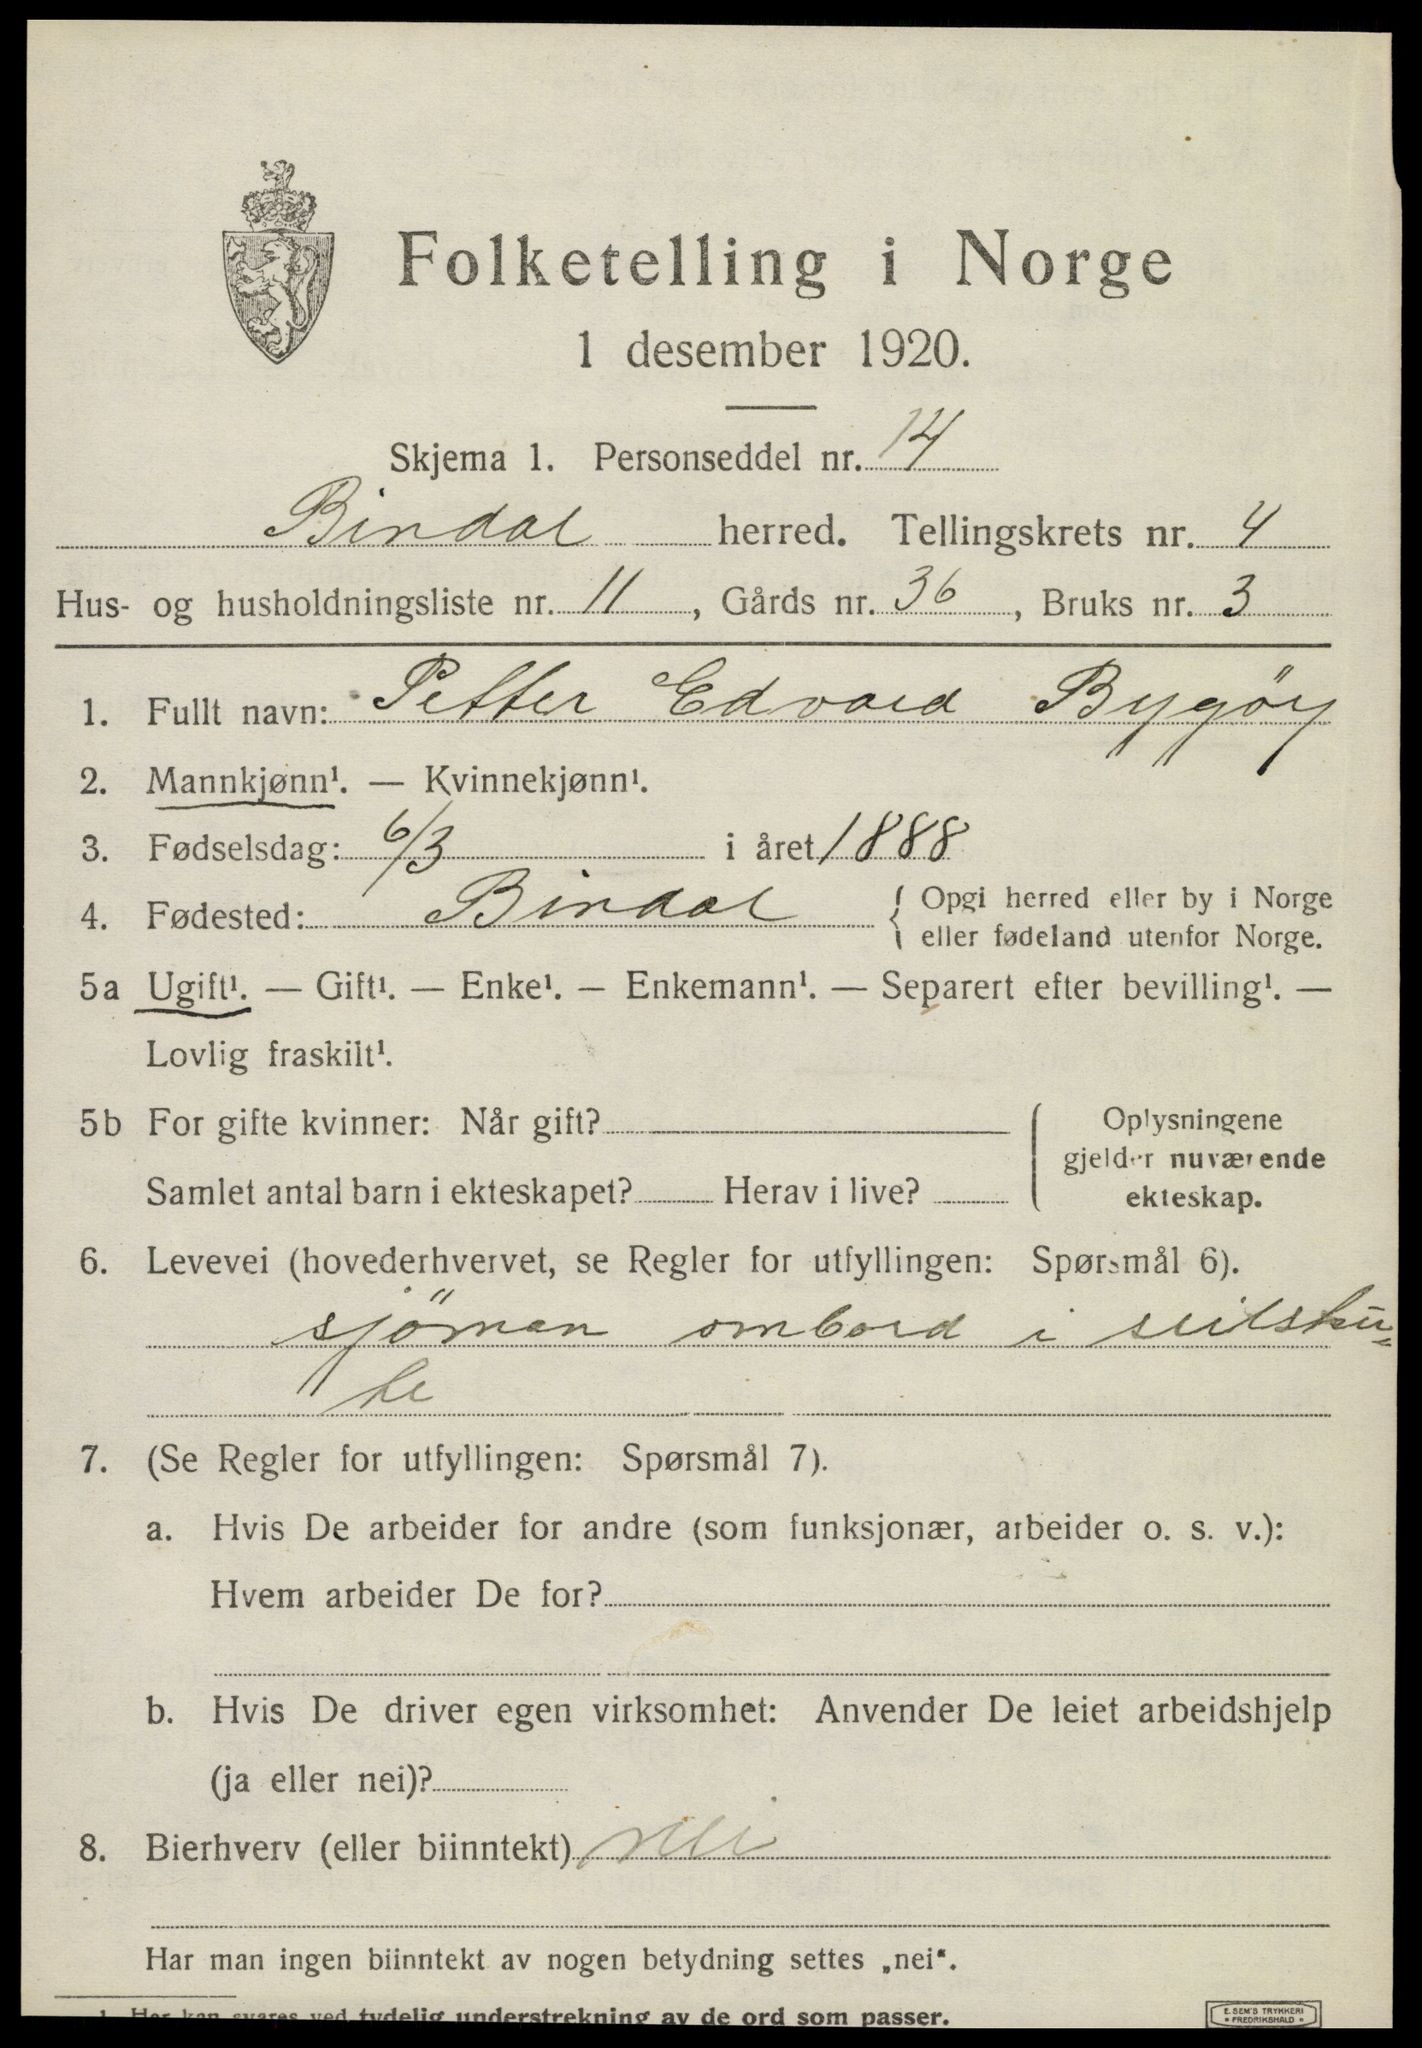 Folketelling i Norge
1 desember 1920.
Skjema 1. Personseddel nr. 14
Bindal herred. Tellingskrets nr. 4
Hus- og husholdningsliste nr. 11, Gårds nr. 36, Bruks nr. 3
1. Fullt navn: Petter Edvard Bygöy
2. Mannkjønn¹. — Kvinnekjønn¹.
3. Fødselsdag: 6/3 i året 1888
4. Fødested: Bindal { Opgi herred eller by i Norge
eller fødeland utenfor Norge.
5a Ugift¹. — Gift¹. — Enke¹. — Enkemann¹. — Separert efter bevilling¹. —
Lovlig fraskilt¹.
5b For gifte kvinner: Når gift? { Oplysningene
gjelder nuværende
Samlet antal barn i ekteskapet? Herav i live? ekteskap.
6. Levevei (hovederhvervet, se Regler for utfyllingen: Spørsmål 6).
sjöman ombord i seilsku-
te
7. (Se Regler for utfyllingen: Spørsmål 7).
a. Hvis De arbeider for andre (som funksjonær, arbeider o. s. v.):
Hvem arbeider De for?
b. Hvis De driver egen virksomhet: Anvender De leiet arbeidshjelp
(ja eller nei)?
8. Bierhverv (eller biinntekt) nei
Har man ingen biinntekt av nogen betydning settes „nei“.
1. Her kan svares ved tydelig understrekning av de ord som passer.
E. SEM'S TRYKKERI
FREDRIKSHALD